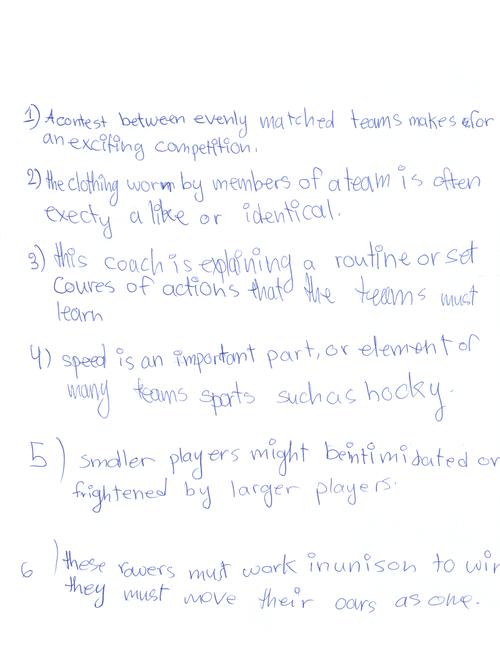 1) A contest between evenly matched teams makes for
an exciting competition.
2) the clothing worn by members of a team is often
execty a like or identical.
3) this coach is explaining a routine or set
Coures of actions that the teams must
learn
4) speed is an important part, or element of
many teams sports such as hocky.
5) smaller players might be intimidated or
frightened by larger players.
6) these rowers must work in unison to win
they must move their oars as one.